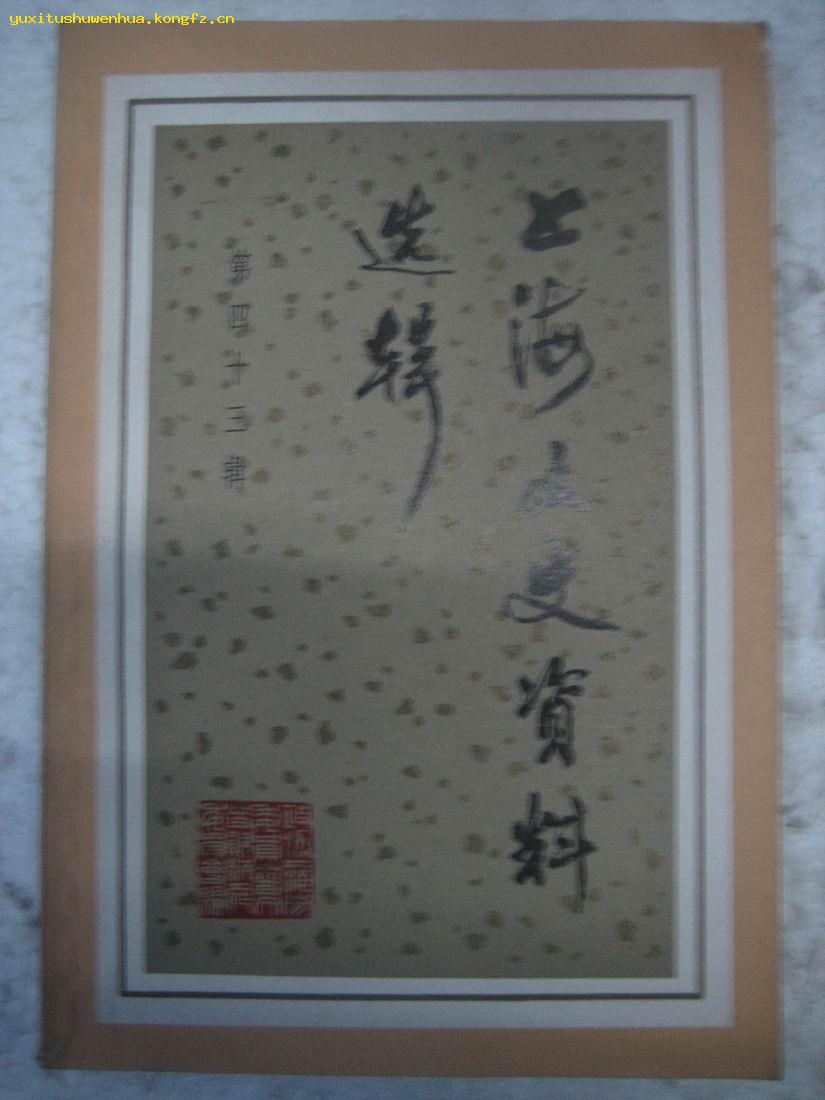 yuxitushuwenhua.kongfz.cn
上海文史資料
选辑
第四十三辑